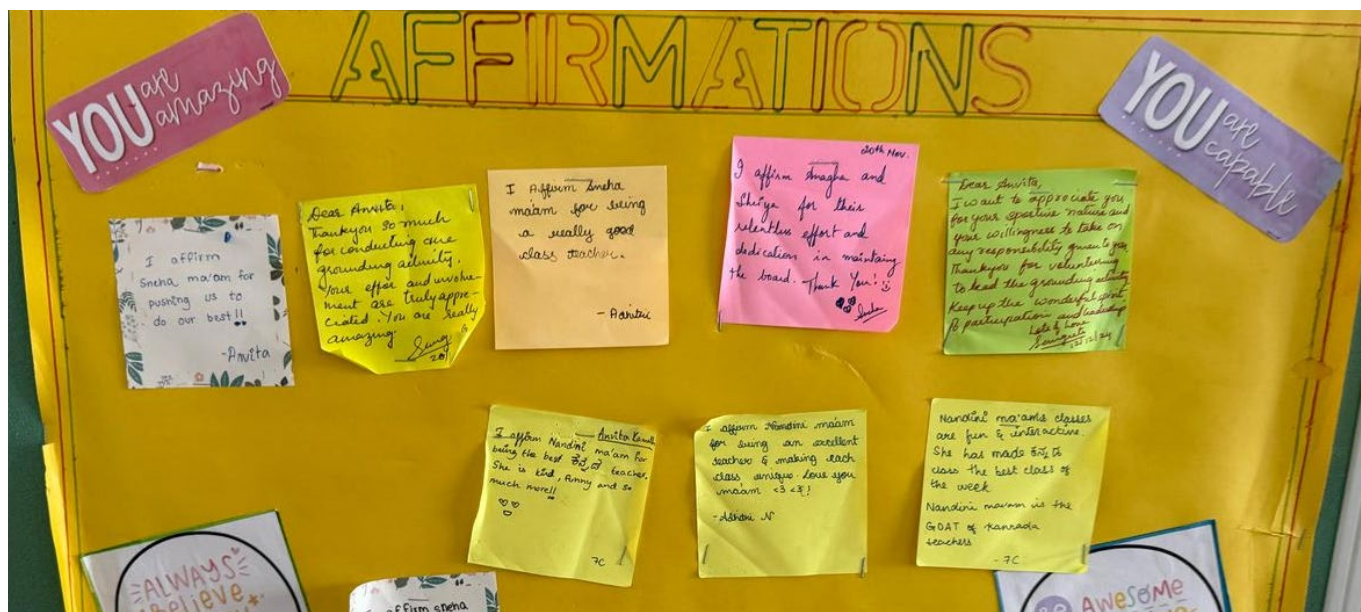 AFFIRMATIONS
YOU are
amazing
YOU are
capable
I affirm
Sneha ma'am for
pushing us to
do our best!!
-Anvita
Dear Anvita,
Thankyou so much
for conducting one
grounding activity.
Your effor and involve-
ment are truly appre-
ciated. You are really
amazing.
I Affirm Sneha
ma'am for being
a really good
class teacher.
20th Nov.
I affirm Anagha and
Shriya for their
relentless effort and
dedication in maintaing
the board. Thank You!
Sneha
Dear Anvita,
I want to appreciate you
for your sportive nature and
your willingness to take on
any responsibility given to you
Thankyou for volunteering
to lead the grounding activity
Keep up the wonderful spirit
of participation and leadership
Lots of love
I affirm Nandini ma'am for
being the best ಕನ್ನಡ teacher.
She is kind, funny and so
much more!!
7C
I affirm Nandini ma'am
for being an excellent
teacher & making each
class unique. Love you
ma'am <3 <3!
Nandini ma'ams classes
are fun & interactive.
She has made ಕನ್ನಡ
class the best class of
the week
Nandini ma'am is the
GOAT of Kannada
teachers
- 7C
ALWAYS
Believe
affirm sneha
AWESOME